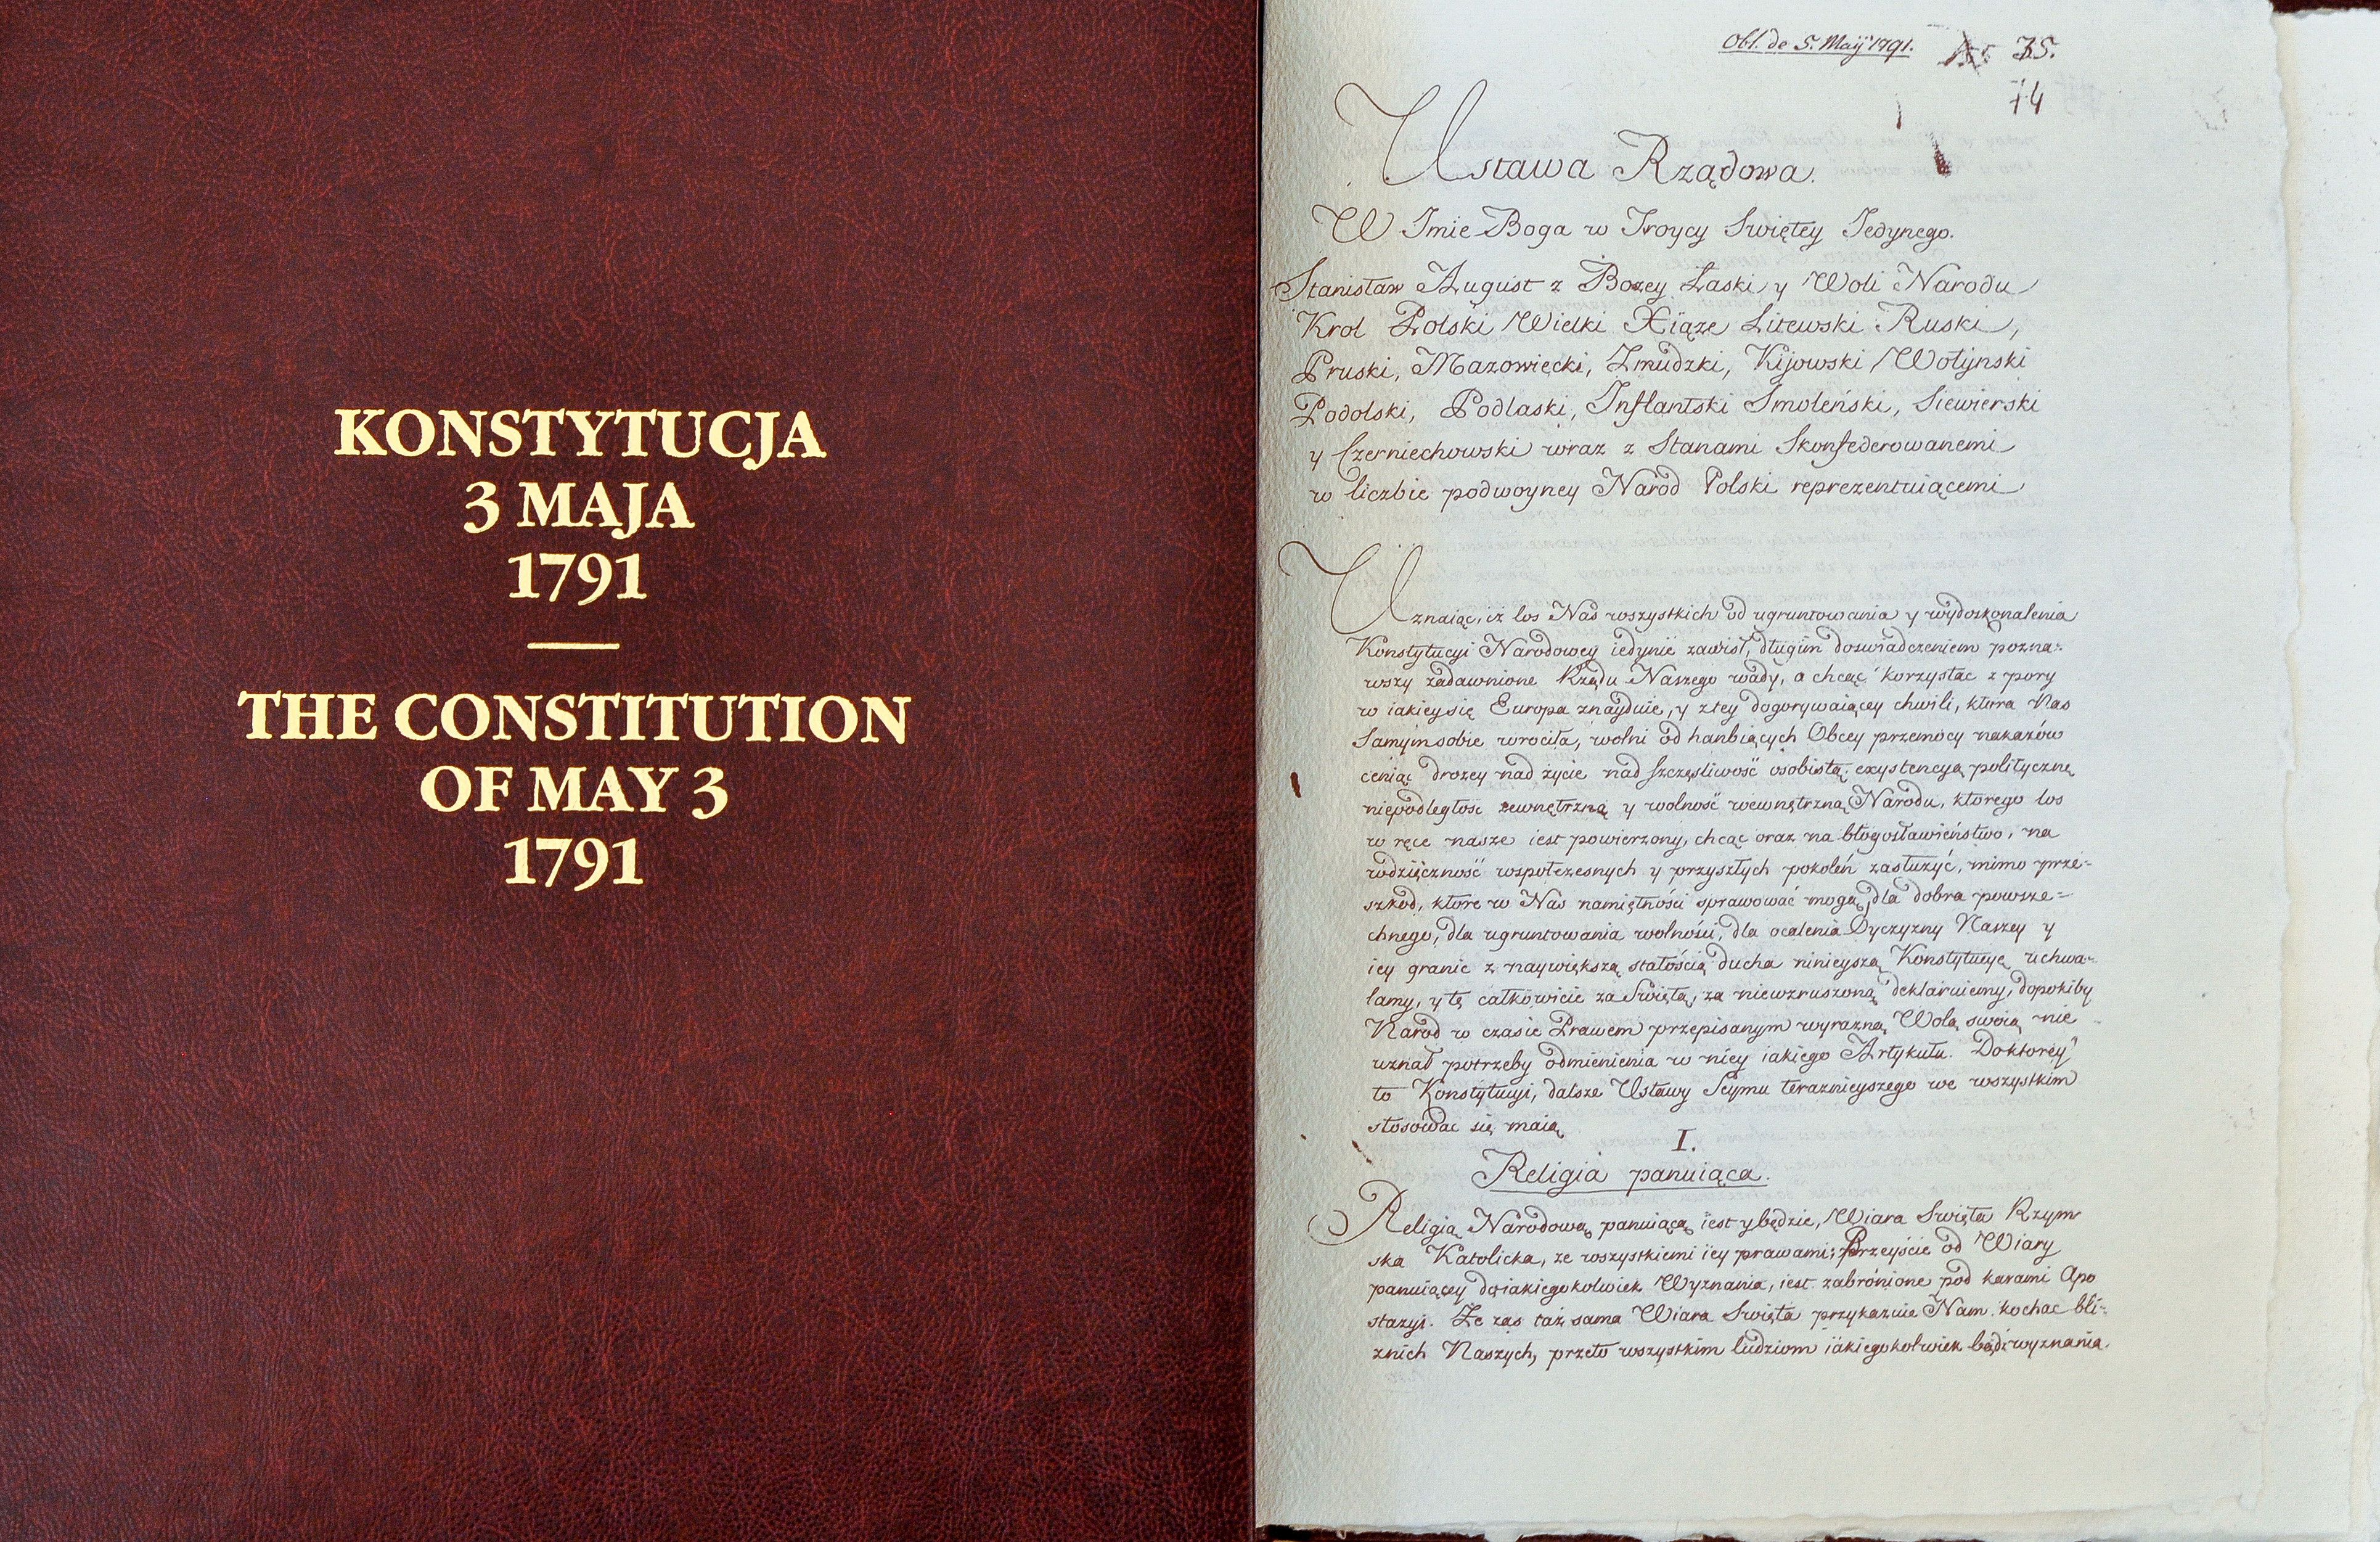 KONSTYTUCJA
3 MAJA
1791
THE CONSTITUTION
OF MAY 3
1791
Obl. de 5. Maÿ 1791.
35.
74
Ustawa Rządowa.
W Imie Boga w Troycy Swiętey Iedynego.
Stanisław August z Bozey Łaski y Woli Narodu
Krol Polski Wielki Xiąze Litewski Ruski,
Pruski, Mazowięcki, Zmudzki, Kijowski Wołynski
Podolski, Podlaski, Inflantski Smoleński, Siewierski
y Czerniechowski wraz z Stanami Skonfederowanemi
w liczbie podwoyney Narod Polski reprezentuiącemi
Uznaiąc, iż los Nas wszystkich od ugruntowania y wydoskonalenia
Konstytucyi Narodowey iedynie zawisł, długim doswiadczeniem pozna-
wszy zadawnione Rządu Naszego wady, a chcąc korzystac z pory
w iakiey się Europa znayduie, y z tey dogorywaiącey chwili, ktora Nas
Samym sobie wrociła, wolni od hanbiących Obcey przemocy nakazów
ceniąc drozey nad życie nad szczęsliwość osobistą; exystencyą polityczną
niepodległosc zewnętrzną y wolność wewnętrzną Narodu, ktorego los
w ręce nasze iest powierzony, chcąc oraz na błogosławieństwo, na
wdzięczność wspołczesnych y przyszłych pokoleń zasłużyć, mimo prze-
szkod, ktore w Nas namiętności sprawować mogą, dla dobra powsze=
chnego, dla ugruntowania wolności, dla ocalenia Oyczyzny Naszey y
iey granic z naywiększą stałością ducha ninieyszą Konstytucyę uchwa-
lamy, y tę całkowicie za Swiętą, za niewzruszoną deklaruiemy, dopokiby
Narod w czasie Prawem przepisanym wyrazną Wolą swoią nie
uznał potrzeby odmienienia w niey iakiego Artykułu. Do ktorey
to Konstytucyi, dalsze Ustawy Seymu teraznieyszego we wszystkim
stosowac się maią
I.
Religia panuiąca.
Religią Narodową panuiącą iest y będzie, Wiara Swięta Rzym
ska Katolicka, ze wszystkiemi iey prawami; Przeyście od Wiary
panuiącey do iakiegokolwiek Wyznania, iest zabrónione pod karami Apo
stazyi. Ze zas taż sama Wiara Swięta przykazuie Nam kochac bli-
znich Naszych, przeto wszystkim ludziom iakiegokolwiek bądź wyznania.